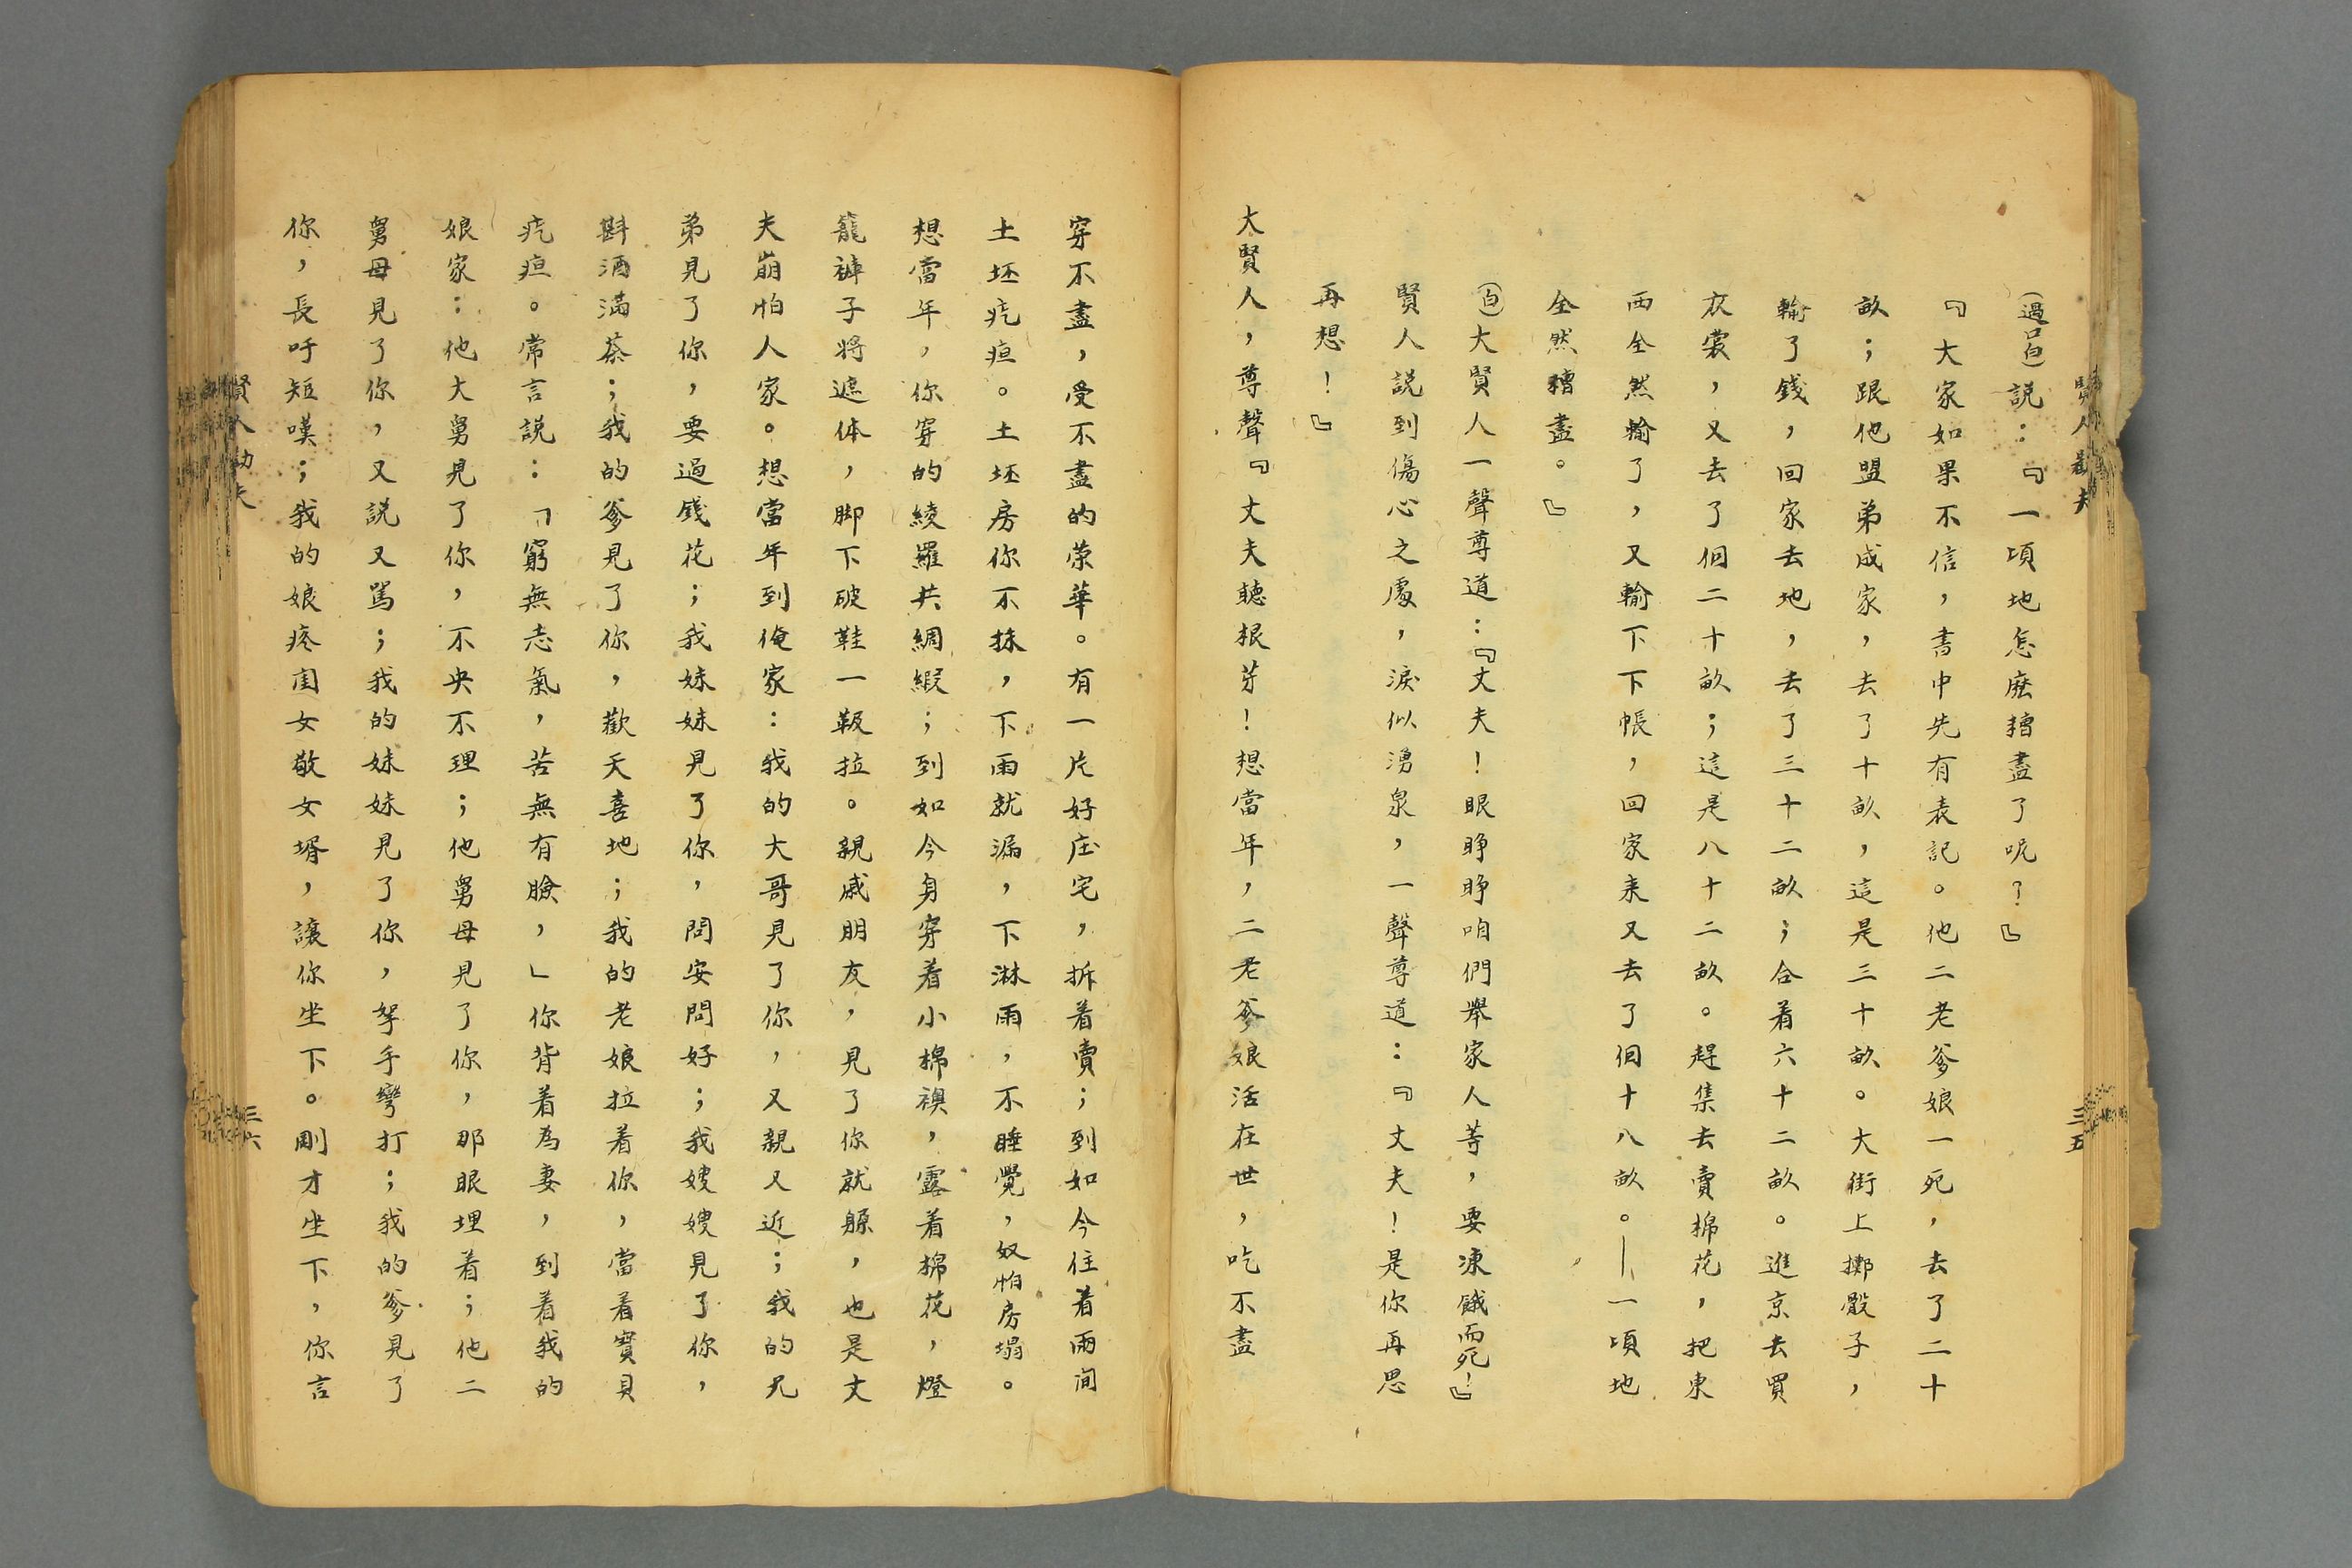 賢人勸夫
三五
(過口白)說：『一項地怎麽糟盡了呢？』
『大家如果不信，書中先有表記。他二老爹娘一死，去了二十
畝；跟他盟弟成家，去了十畝，這是三十畝。大街上擲骰子，
輸了錢，回家去地，去了三十二畝；合着六十二畝。進京去買
衣裳，又去了個二十畝；這是八十二畝。趕集去賣棉花，把東
西全然輸了，又輸下下帳，回家来又去了個十八畝。——一項地
全然糟盡。』
(白)大賢人一聲尊道：『丈夫！眼睜睜咱們舉家人等，要凍餓而死！』
賢人說到傷心之處，淚似湧泉，一聲尊道：『丈夫！是你再思
再想！』
大賢人，尊聲『丈夫聽根芽！想當年，二老爹娘活在世，吃不盡
穿不盡，受不盡的荣華。有一片好庄宅，拆着賣；到如今住着兩间
土坯疙疸。土坯房你不抹，下雨就漏，下淋雨，不睡覺，奴怕房塌。
想當年，你穿的綾羅共綢緞；到如今身穿着小棉襖，露着棉花，燈
籠褲子将遮体，脚下破鞋一靸拉。親戚朋友，見了你就躲，也是丈
夫崩怕人家。想當年到俺家：我的大哥見了你，又親又近；我的兄
弟見了你，要過錢花；我妹妹見了你，問安問好；我嫂嫂見了你，
斟酒滿茶；我的爹見了你，歡天喜地；我的老娘拉着你，當着寳貝
疙疸。常言説：「窮無志氣，苦無有臉，」你背着為妻，到着我的
娘家：他大舅見了你，不央不理；他舅母見了你，那眼埋着；他二
舅母見了你，又説又駡；我的妹妹見了你，拏手彎打；我的爹見了
你，長吁短嘆；我的娘疼閨女敬女壻，讓你坐下。剛才坐下，你言
賢人勸夫
三六